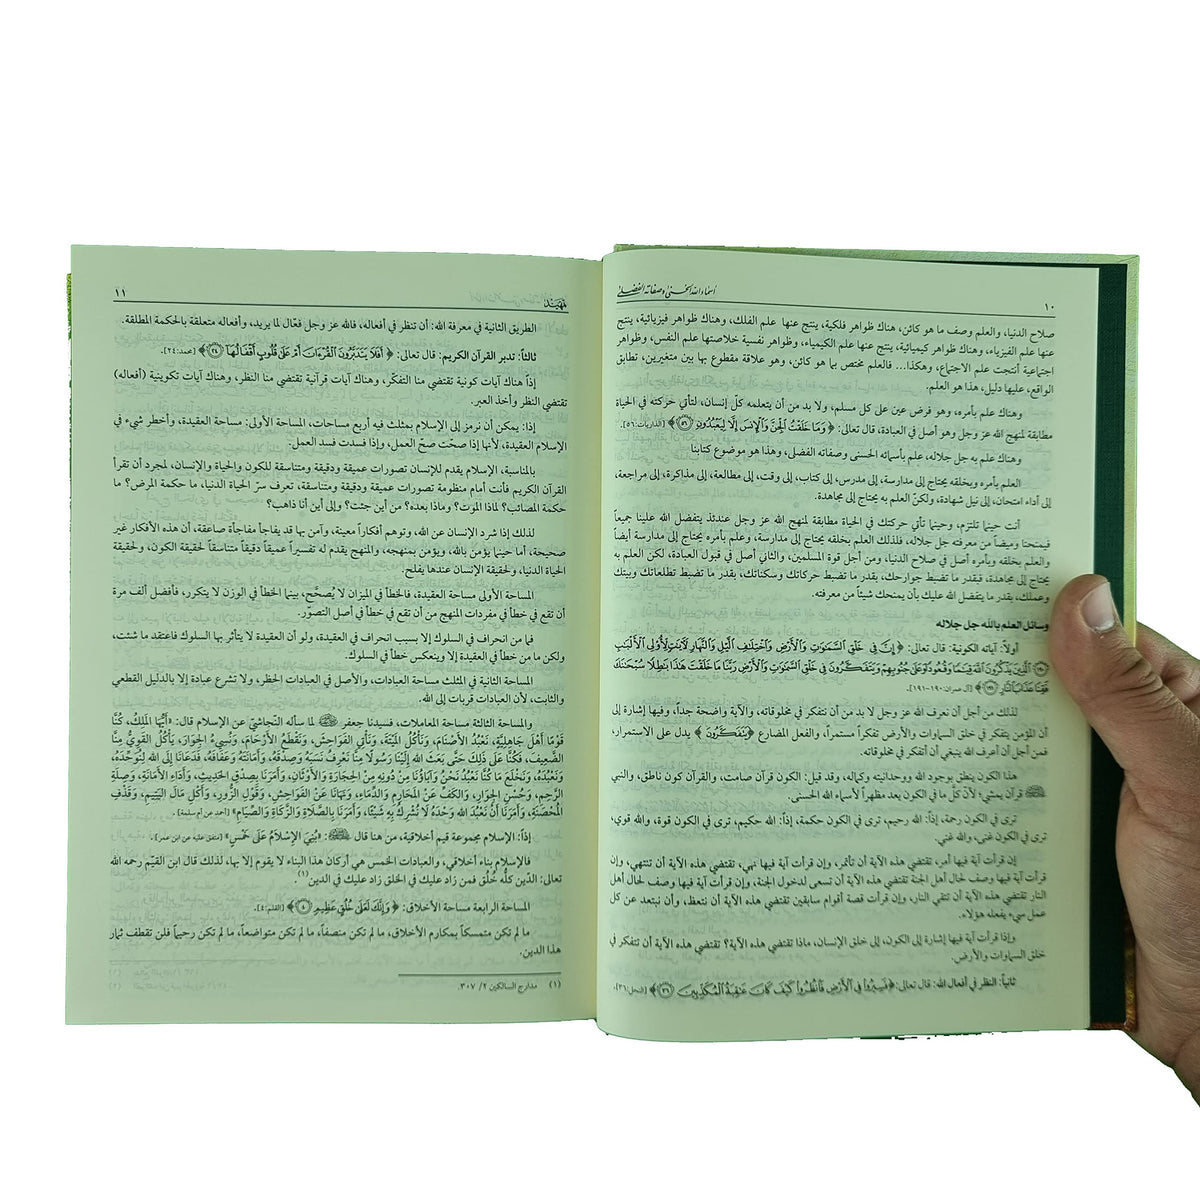 ١٠
أسماء الله الحسنى وصفاته الفضلى
صلاح الدنيا، والعلم وصف ما هو كائن، هناك ظواهر فلكية، ينتج عنها علم الفلك، وهناك ظواهر فيزيائية، ينتج
عنها علم الفيزياء، وهناك ظواهر كيميائية، ينتج عنها علم الكيمياء، وظواهر نفسية خلاصتها علم النفس، وظواهر
اجتماعية أنتجت علم الاجتماع، وهكذا... فالعلم مختص بما هو كائن، وهو علاقة مقطوع بها بين متغيرين، تطابق
الواقع، عليها دليل، هذا هو العلم.
وهناك علم بأمره، وهو فرض عين على كل مسلم، ولا بد من أن يتعلمه كلّ إنسان، لتأتي حركته في الحياة
مطابقة لمنهج الله عز وجل وهو أصل في العبادة، قال تعالى: ﴿ وَمَا خَلَقْتُ الْجِنَّ وَالْإِنسَ إِلَّا لِيَعْبُدُونِ ﴿٥٦﴾ ﴾ [الذاريات:٥٦].
وهناك علم به جل جلاله، علم بأسمائه الحسنى وصفاته الفضلى، وهذا هو موضوع كتابنا
العلم بأمره وبخلقه يحتاج إلى مدارسة، إلى مدرس، إلى كتاب، إلى وقت، إلى مطالعة، إلى مذاكرة، إلى مراجعة،
إلى أداء امتحان، إلى نيل شهادة، ولكنّ العلم به يحتاج إلى مجاهدة.
أنت حينما تلتزم، وحينما تأتي حركتك في الحياة مطابقة لمنهج الله عز وجل عندئذ يتفضل الله علينا جميعاً
فيمنحنا وميضاً من معرفته جل جلاله، فلذلك العلم بخلقه يحتاج إلى مدارسة، وعلم بأمره يحتاج إلى مدارسة أيضاً
والعلم بخلقه وبأمره أصل في صلاح الدنيا، ومن أجل قوة المسلمين، والثاني أصل في قبول العبادة، لكن العلم به
يحتاج إلى مجاهدة، فبقدر ما تضبط جوارحك، بقدر ما تضبط حركاتك وسكناتك، بقدر ما تضبط تطلعاتك وبيتك
وعملك، بقدر ما يتفضل الله عليك بأن يمنحك شيئاً من معرفته.
وسائل العلم بالله جل جلاله
أولاً: آياته الكونية: قال تعالى: ﴿ إِنَّ فِي خَلْقِ السَّمَاوَاتِ وَالْأَرْضِ وَاخْتِلَافِ اللَّيْلِ وَالنَّهَارِ لَآيَاتٍ لِّأُولِي الْأَلْبَابِ
﴿١٩٠﴾ الَّذِينَ يَذْكُرُونَ اللَّهَ قِيَامًا وَقُعُودًا وَعَلَىٰ جُنُوبِهِمْ وَيَتَفَكَّرُونَ فِي خَلْقِ السَّمَاوَاتِ وَالْأَرْضِ رَبَّنَا مَا خَلَقْتَ هَٰذَا بَاطِلًا سُبْحَانَكَ
فَقِنَا عَذَابَ النَّارِ ﴿١٩١﴾ ﴾ [آل عمران:١٩٠-١٩١].
لذلك من أجل أن نعرف الله عز وجل لا بد من أن نتفكر في مخلوقاته، والآية واضحة جداً، وفيها إشارة إلى
أن المؤمن يتفكر في خلق السماوات والأرض تفكراً مستمراً، والفعل المضارع ﴿ يَتَفَكَّرُونَ ﴾ يدل على الاستمرار،
فمن أجل أن أعرف الله ينبغي أن أتفكر في مخلوقاته.
هذا الكون ينطق بوجود الله ووحدانيته وكماله، وقد قيل: الكون قرآن صامت، والقرآن كون ناطق، والنبي
ﷺ قرآن يمشي؛ لأنّ كلّ ما في الكون يعد مظهراً لأسماء الله الحسنى.
ترى في الكون رحمة، إذاً: الله رحيم، ترى في الكون حكمة، إذاً: الله حكيم، ترى في الكون قوة، والله قوي؛
ترى في الكون غنى، والله غني.
إن قرأت آية فيها أمر، تقتضي هذه الآية أن تأتمر، وإن قرأت آية فيها نهي، تقتضي هذه الآية أن تنتهي، وإن
قرأت آية فيها وصف لحال أهل الجنة تقتضي هذه الآية أن تسعى لدخول الجنة، وإن قرأت آية فيها وصف لحال أهل
النار تقتضي هذه الآية أن تتقي النار، وإن قرأت قصة أقوام سابقين تقتضي هذه الآية أن نتعظ، وأن نبتعد عن كل
عمل سيء يفعله هؤلاء.
وإذا قرأت آية فيها إشارة إلى الكون، إلى خلق الإنسان، ماذا تقتضي هذه الآية؟ تقتضي هذه الآية أن تتفكر في
خلق السماوات والأرض.
ثانياً: النظر في أفعال الله: قال تعالى: ﴿فَسِيرُوا فِي الْأَرْضِ فَانظُرُوا كَيْفَ كَانَ عَاقِبَةُ الْمُكَذِّبِينَ ﴿٣٦﴾ ﴾ [النحل:٣٦].
تمهيد
١١
الطريق الثانية في معرفة الله: أن تنظر في أفعاله، فالله عز وجل فعّال لما يريد، وأفعاله متعلقة بالحكمة المطلقة.
ثالثاً: تدبر القرآن الكريم: قال تعالى: ﴿ أَفَلَا يَتَدَبَّرُونَ الْقُرْآنَ أَمْ عَلَىٰ قُلُوبٍ أَقْفَالُهَا ﴿٢٤﴾ ﴾ [محمد:٢٤].
إذاً هناك آيات كونية تقتضي منا التفكّر، وهناك آيات قرآنية تقتضي منا النظر، وهناك آيات تكوينية (أفعاله)
تقتضي النظر وأخذ العبر.
إذاً: يمكن أن نرمز إلى الإسلام بمثلث فيه أربع مساحات، المساحة الأولى: مساحة العقيدة، وأخطر شيء في
الإسلام العقيدة، لأنها إذا صحّت صحّ العمل، وإذا فسدت فسد العمل.
بالمناسبة، الإسلام يقدم للإنسان تصورات عميقة ودقيقة ومتناسقة للكون والحياة والإنسان، لمجرد أن تقرأ
القرآن الكريم فأنت أمام منظومة تصورات عميقة ودقيقة ومتناسقة، تعرف سرّ الحياة الدنيا، ما حكمة المرض؟ ما
حكمة المصائب؟ لماذا الموت؟ وماذا بعده؟ من أين جئت؟ وإلى أين أنا ذاهب؟
لذلك إذا شرد الإنسان عن الله، وتوهم أفكاراً معينة، وآمن بها قد يفاجأ مفاجأة صاعقة، أن هذه الأفكار غير
صحيحة، أما حينما يؤمن بالله، ويؤمن بمنهجه، والمنهج يقدم له تفسيراً عميقاً دقيقاً متناسقاً لحقيقة الكون، ولحقيقة
الحياة الدنيا، ولحقيقة الإنسان عندها يفلح.
المساحة الأولى مساحة العقيدة، فالخطأ في الميزان لا يُصحَّح، بينما الخطأ في الوزن لا يتكرر، فأفضل ألف مرة
أن تقع في خطأ في مفردات المنهج من أن تقع في خطأ في أصل التصوّر.
فما من انحراف في السلوك إلا بسبب انحراف في العقيدة، ولو أن العقيدة لا يتأثر بها السلوك فاعتقد ما شئت،
ولكن ما من خطأ في العقيدة إلا وينعكس خطأ في السلوك.
المساحة الثانية في المثلث مساحة العبادات، والأصل في العبادات الحظر، ولا تشرع عبادة إلا بالدليل القطعي
والثابت، لأن العبادات قربات إلى الله.
والمساحة الثالثة مساحة المعاملات، فسيدنا جعفر لما سأله النجاشي عن الإسلام قال: «أَيُّهَا المَلِكُ، كُنَّا
قَوْمًا أَهْلَ جَاهِلِيَّةٍ، نَعْبُدُ الأَصْنَامَ، وَنَأْكُلُ المَيْتَةَ، وَنَأْتِي الفَوَاحِشَ، وَنَقْطَعُ الأَرْحَامَ، وَنُسِيءُ الجِوَارَ، يَأْكُلُ القَوِيُّ مِنَّا
الضَّعِيفَ، فَكُنَّا عَلَى ذَلِكَ حَتَّى بَعَثَ اللهُ إِلَيْنَا رَسُولًا مِنَّا نَعْرِفُ نَسَبَهُ وَصِدْقَهُ، وَأَمَانَتَهُ وَعَفَافَهُ، فَدَعَانَا إِلَى اللهِ لِنُوَحِّدَهُ،
وَنَعْبُدَهُ، وَنَخْلَعَ مَا كُنَّا نَعْبُدُ نَحْنُ وَآبَاؤُنَا مِنْ دُونِهِ مِنَ الحِجَارَةِ وَالأَوْثَانِ، وَأَمَرَنَا بِصِدْقِ الحَدِيثِ، وَأَدَاءِ الأَمَانَةِ، وَصِلَةِ
الرَّحِمِ، وَحُسْنِ الجِوَارِ، وَالكَفِّ عَنْ المَحَارِمِ وَالدِّمَاءِ، وَنَهَانَا عَنْ الفَوَاحِشِ، وَقَوْلِ الزُّورِ، وَأَكْلِ مَالِ اليَتِيمِ، وَقَذْفِ
المُحْصَنَةِ، وَأَمَرَنَا أَنْ نَعْبُدَ اللهَ وَحْدَهُ لَا نُشْرِكُ بِهِ شَيْئًا، وَأَمَرَنَا بِالصَّلَاةِ وَالزَّكَاةِ وَالصِّيَامِ» [أحمد عن أم سلمة].
إذاً: الإسلام مجموعة قيم أخلاقية، من هنا قال ﷺ: «بُنِيَ الإِسْلَامُ عَلَى خَمْسٍ» [متفق عليه عن ابن عمر].
فالإسلام بناء أخلاقي، والعبادات الخمس هي أركان هذا البناء لا يقوم إلا بها، لذلك قال ابن القيّم رحمه الله
تعالى: الدِّين كلُّه خُلُق فمن زاد عليك في الخلق زاد عليك في الدين(١).
المساحة الرابعة مساحة الأخلاق: ﴿ وَإِنَّكَ لَعَلَىٰ خُلُقٍ عَظِيمٍ ﴿٤﴾ ﴾ [القلم:٤].
ما لم تكن متمسكاً بمكارم الأخلاق، ما لم تكن منصفاً، ما لم تكن متواضعاً، ما لم تكن رحيماً فلن تقطف ثمار
هذا الدين.
(١) مدارج السالكين ٢/ ٣٠٧.